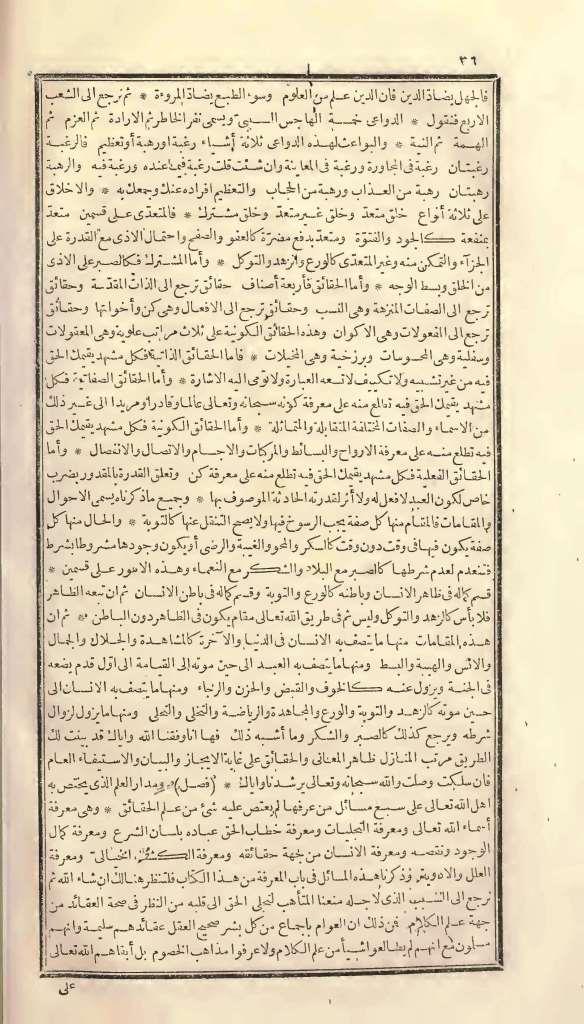 ٣٦
فالجهل يضاد الدين فان الدين علم من العلوم وسوء الطبع يضاد المروءة * ثم نرجع الى الشعب
الاربع فنقول * الدواعى خمسة الهاجس السببى ويسمى نقر الخاطر ثم الارادة ثم العزم ثم
الهمة ثم النية * والبواعث لهذه الدواعى ثلاثة أشياء رغبة أو رهبة أو تعظيم فالرغبة
رغبتان رغبة فى المجاورة ورغبة فى المعاينة وان شئت قلت رغبة فيما عنده ورغبة فيه والرهبة
رهبتان رهبة من العذاب ورهبة من الحجاب والتعظيم افراده عنك وجمعك به * والاخلاق
على ثلاثة أنواع خلق متعدّ وخلق غير متعدّ وخلق مشترك * فالمتعدّى على قسمين متعدّ
بمنفعة كالجود والفتوّة ومتعدّ بدفع مضرّة كالعفو والصفح واحتمال الاذى مع القدرة على
الجزاء والتمكن منه وغير المتعدّى كالورع والزهد والتوكل * وأما المشترك فكالصبر على الاذى
من الخلق وبسط الوجه * وأما الحقائق فأربعة أصناف حقائق ترجع الى الذات المقدّسة وحقائق
ترجع الى الصفات المنزهة وهى النسب وحقائق ترجع الى الافعال وهى كن وأخواتها وحقائق
ترجع الى المفعولات وهى الاكوان وهذه الحقائق الكونية على ثلاث مراتب علوية وهى المعقولات
وسفلية وهى المحسوسات وبرزخية وهى المخيلات * فاما الحقائق الذاتية فكل مشهد يقيمك الحق
فيه من غير تشبيه ولا تكييف لاتسعه العبارة ولا تومى اليه الاشارة * وأما الحقائق الصفاتية فكل
مشهد يقيمك الحق فيه تطلع منه على معرفة كونه سبحانه وتعالى عالما وقادرا ومريدا الى غير ذلك
من الاسماء والصفات المختلفة المتقابلة والمتماثلة * وأما الحقائق الكونية فكل مشهد يقيمك الحق
فيه تطلع منه على معرفة الارواح والبسائط والمركبات والاجسام والاتصال والانفصال * وأما
الحقائق الفعلية فكل مشهد يقيمك الحق فيه تطلع منه على معرفة كن وتعلق القدرة بالمقدور بضرب
خاص لكون العبد لافعل له ولا أثر لقدرته الحادثة الموصوف بها * وجميع ماذكرناه يسمى الاحوال
والمقامات فالمقام منها كل صفة يجب الرسوخ فيها ولا يصح التنقل عنها كالتوبة * والحال منها كل
صفة يكون فيها فى وقت دون وقت كالسكر والمحو والغيبة والرضى أو يكون وجودها مشروطا بشرط
فتنعدم لعدم شرطها كالصبر مع البلاء والشكر مع النعماء وهذه الامور على قسمين *
قسم كماله فى ظاهر الانسان وباطنه كالورع والتوبة وقسم كماله فى باطن الانسان ثم ان تبعه الظاهر
فلا بأس كالزهد والتوكل وليس ثم فى طريق الله تعالى مقام يكون فى الظاهر دون الباطن * ثم ان
هذه المقامات منها ما يتصف به الانسان فى الدنيا والآخرة كالمشاهدة والجلال والجمال
والانس والهيبة والبسط ومنها ما يتصف به العبد الى حين موته الى القيامة الى اوّل قدم يضعه
فى الجنة ويزول عنه كالخوف والقبض والحزن والرجاء ومنها ما يتصف به الانسان الى
حين موته كالزهد والتوبة والورع والمجاهدة والرياضة والتخلى والتحلى ومنها ما يزول لزوال
شرطه ويرجع كذلك كالصبر والشكر وما أشبه ذلك فها انا وفقنا الله واياك قد بينت لك
الطريق مرتب المنازل ظاهر المعانى والحقائق على غاية الايجاز والبيان والاستيفاء العام
فان سلكت وصلت والله سبحانه وتعالى يرشدنا واياك * (فصل) * ومدار العلم الذى يختص به
أهل الله تعالى على سبع مسائل من عرفها لم يعتص عليه شئ من علم الحقائق * وهى معرفة
أسماء الله تعالى ومعرفة التجليات ومعرفة خطاب الحق عباده بلسان الشرع ومعرفة كمال
الوجود ونقصه ومعرفة الانسان من جهة حقائقه ومعرفة الكشف الخيالى ومعرفة
العلل والادوية وذكرنا هذه المسائل فى باب المعرفة من هذا الكتاب فلتنظر هنالك ان شاء الله ثم
نرجع الى السبب الذى لاجله منعنا المتأهب لتجلى الحق الى قلبه من النظر فى صحة العقائد من
جهة علم الكلام فمن ذلك ان العوام باجماع من كل بشر صحيح العقل عقائدهم سليمة وانهم
مسلمون مع انهم لم يطالعوا شيأ من علم الكلام ولا عرفوا مذاهب الخصوم بل أبقاهم الله تعالى
على